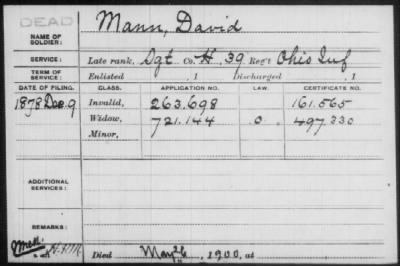 DEAD
NAME OF SOLDIER: Mann, David
SERVICE: Late rank, Sgt Co. H, 39 Reg't Ohio Inf
TERM OF SERVICE: Enlisted , 1 Discharged , 1
DATE OF FILING. CLASS. APPLICATION NO. LAW. CERTIFICATE NO.
1878 Dec. 9 Invalid, 263.698 161.565
Widow, 721.144 497.330
Minor,
ADDITIONAL SERVICES:
REMARKS:
Died May 26, 1900, at